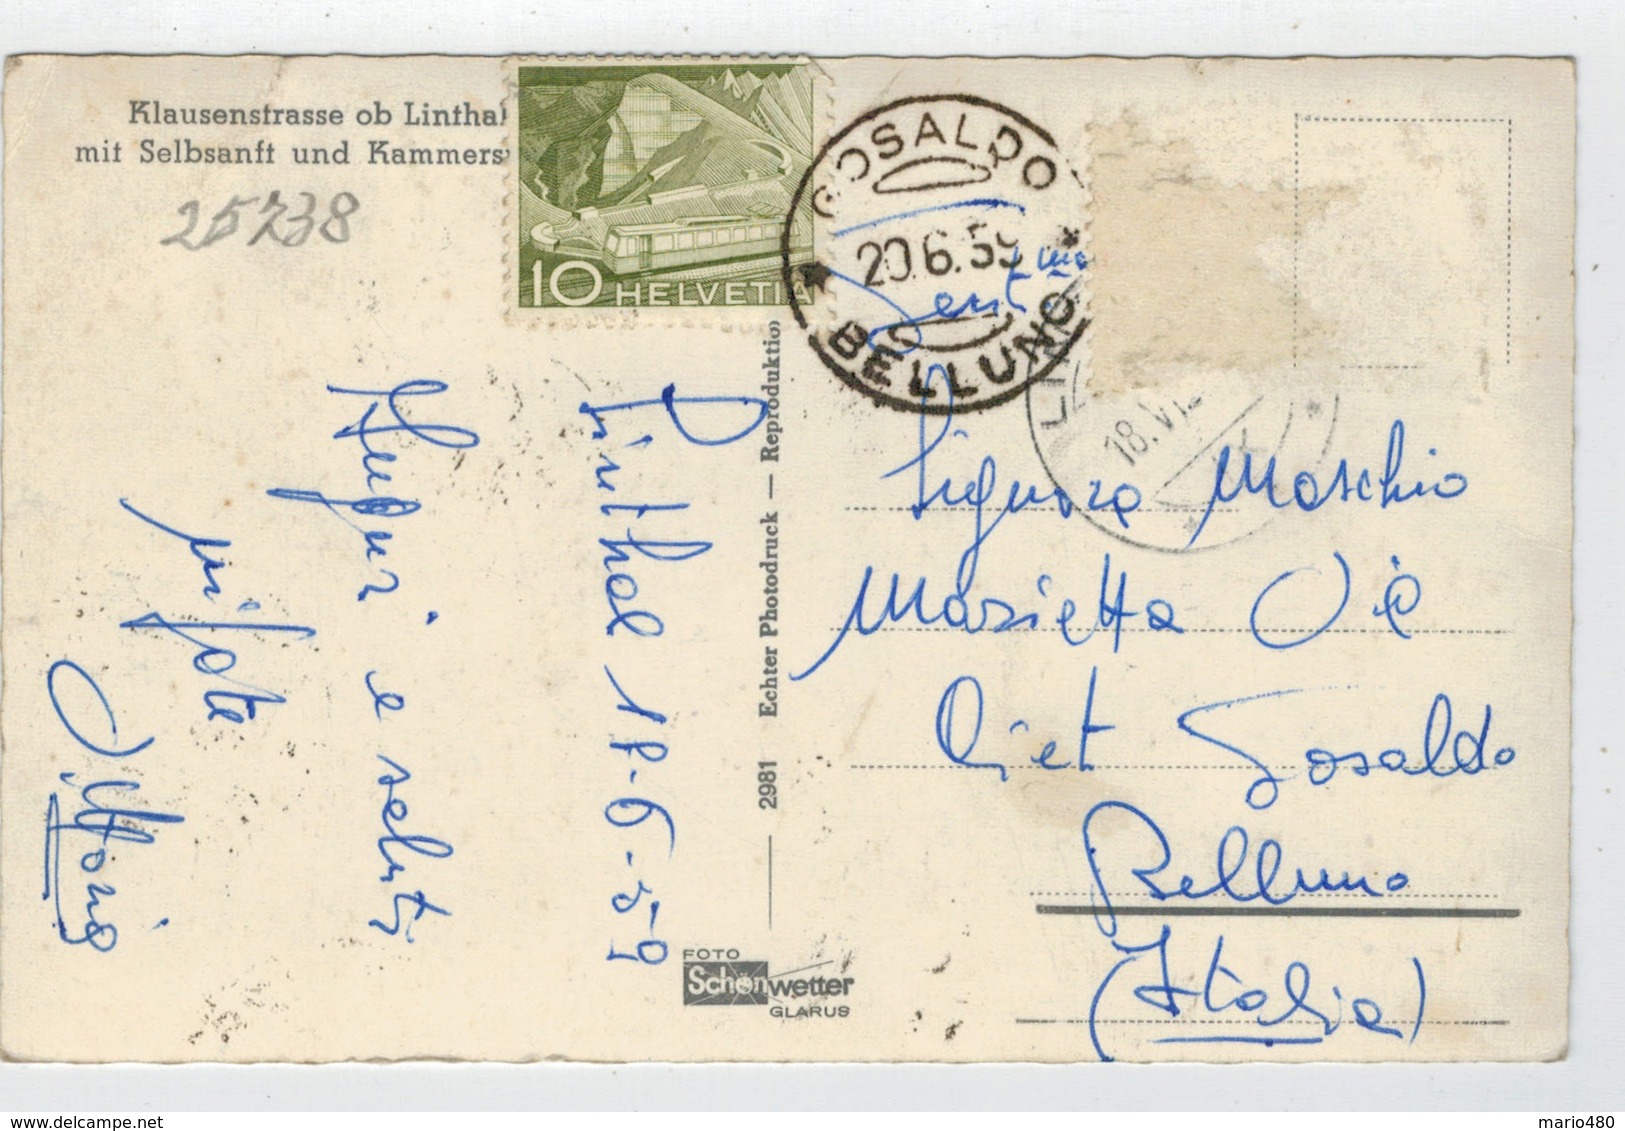 Klausenstrasse ob Linthal
mit Selbsanft und Kammers
25738
10 HELVETIA
GOSALDO
20.6.59
BELLUNO
18.VI
Linthal 18-6-59
Auguri e saluti
Gent.ma
Signora Moschio
Marietta Via
Riet Gosaldo
Belluno
(Italia)
2981 Echter Photodruck — Reproduktion
FOTO
Schönwetter
GLARUS
mario480